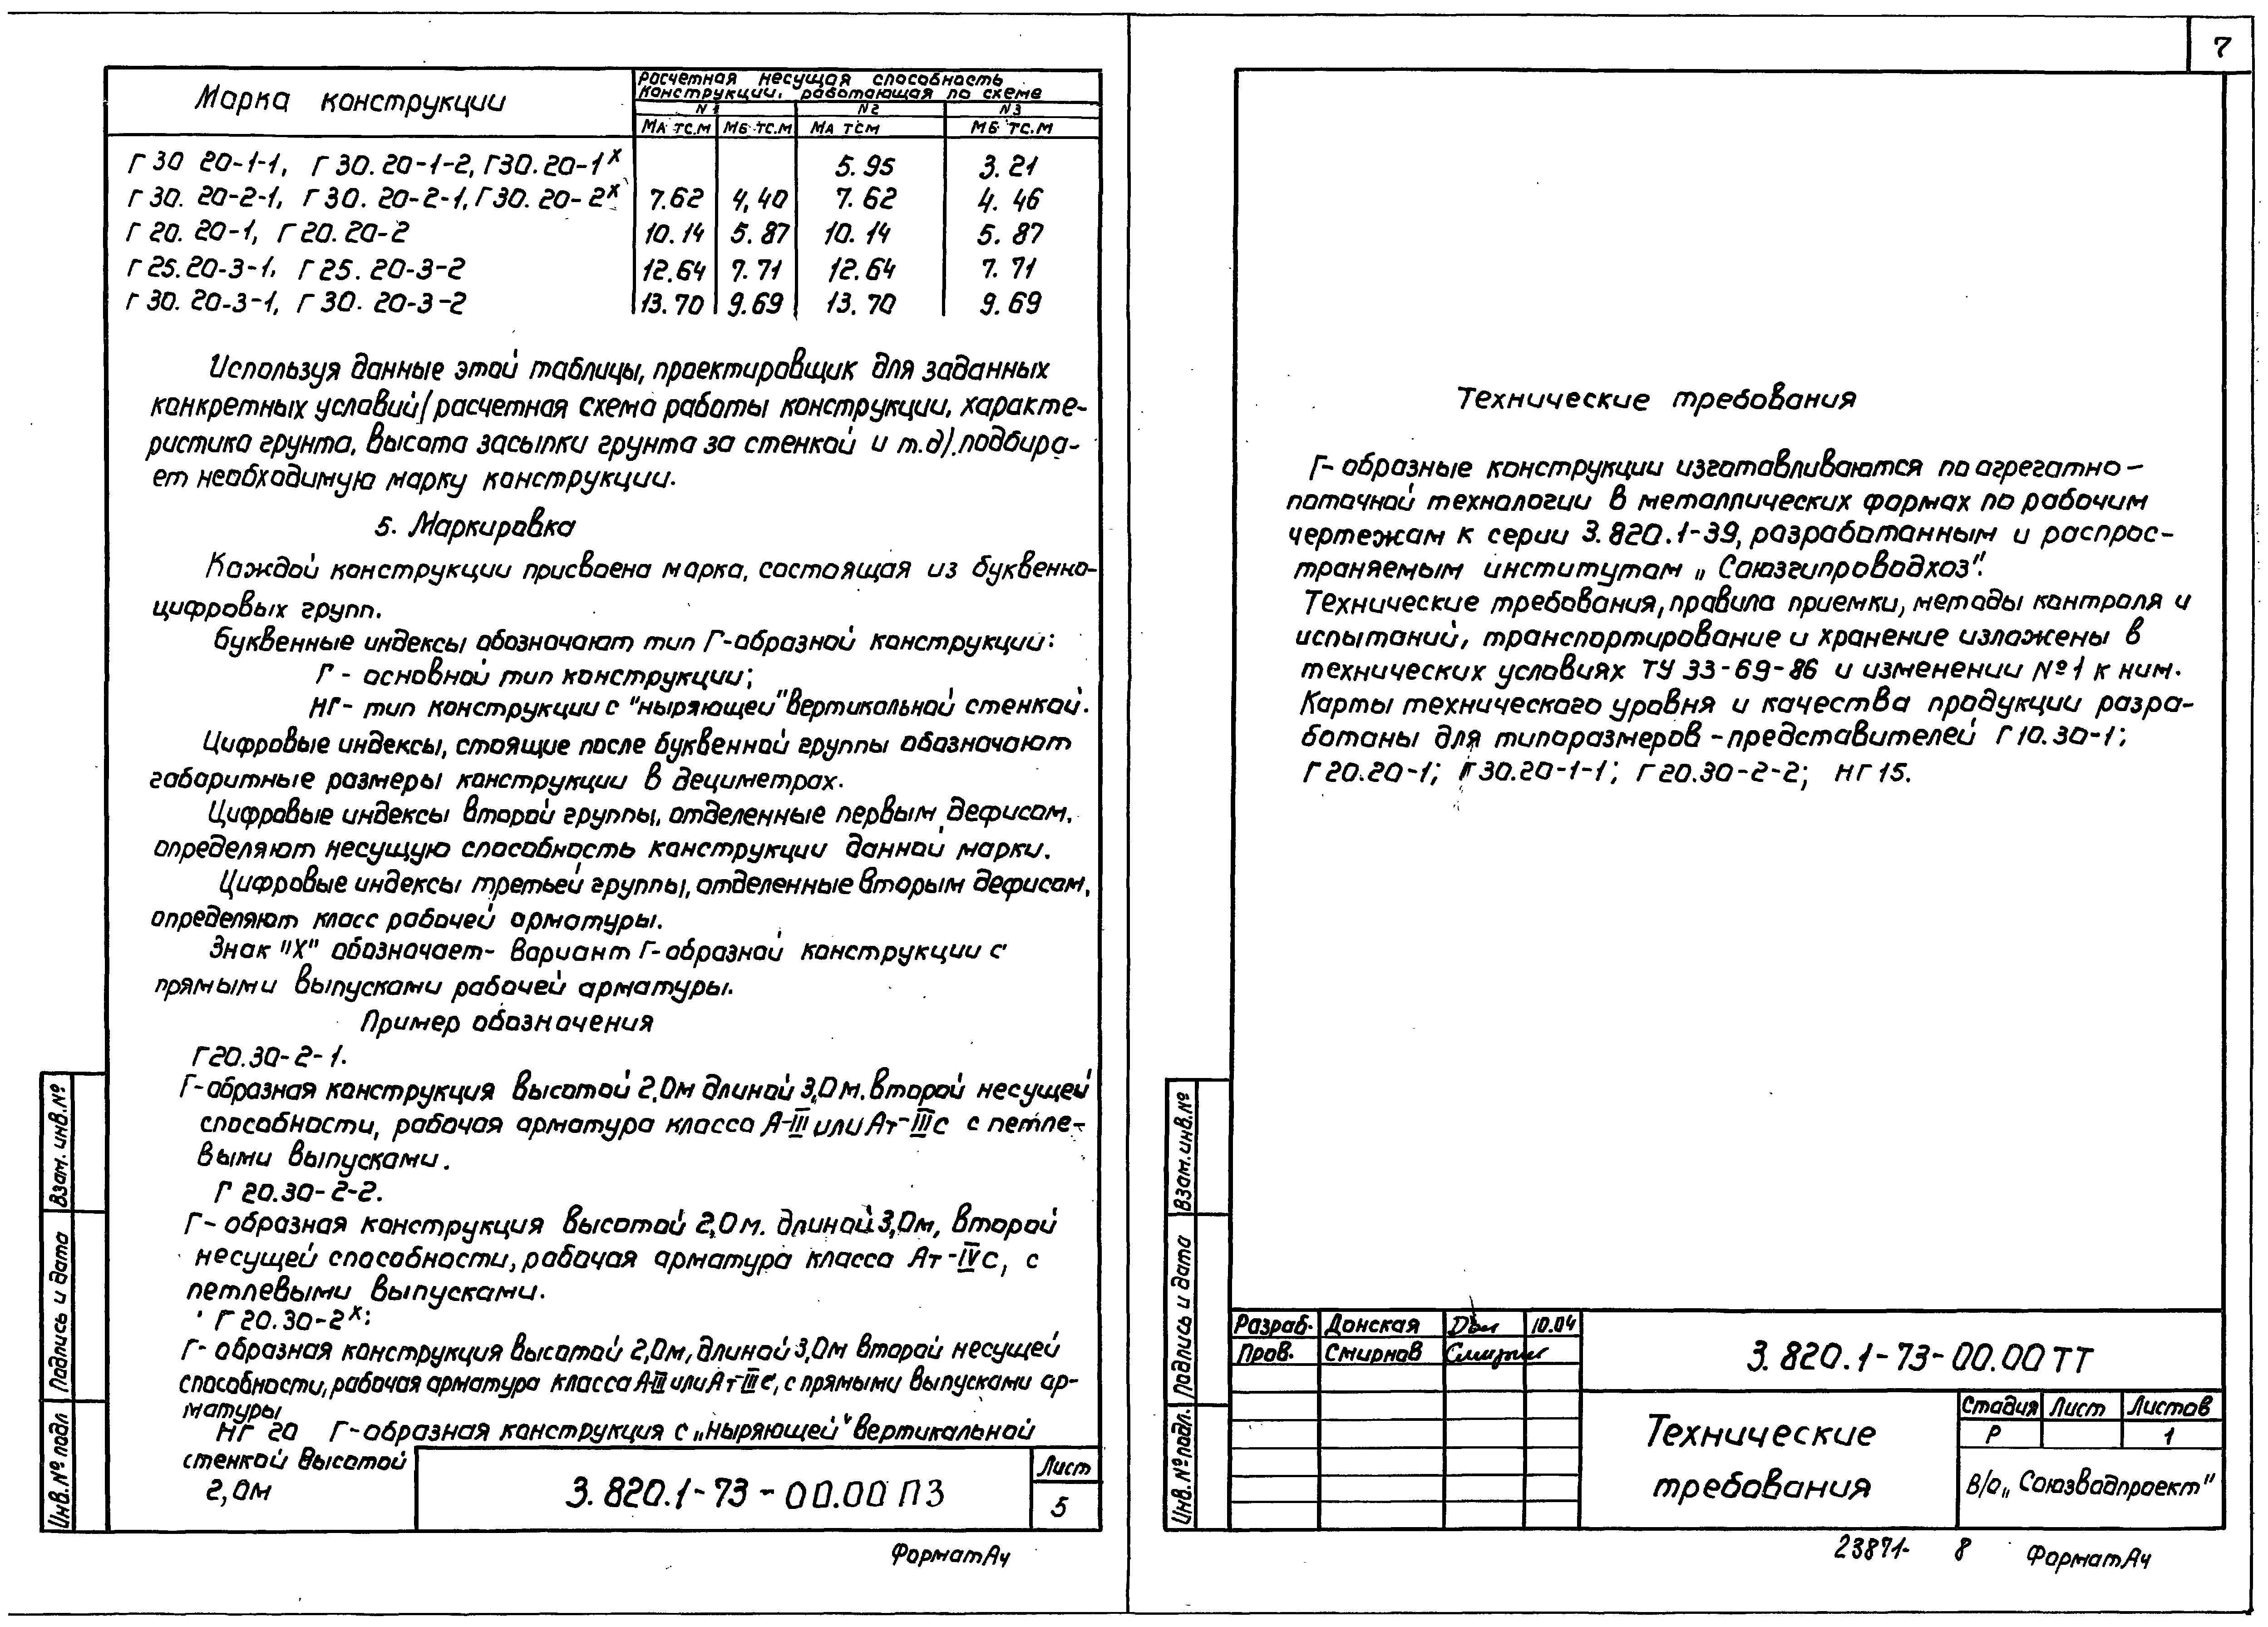 Марка конструкции
Расчетная несущая способность
конструкции, работающая по схеме
N 1 N2 N3
МА ТС.М МБ ТС.М МА ТСМ МБ ТС.М
Г 30 20-1-1, Г 30.20-1-2, Г30.20-1ˣ 5.95 3.21
Г 30. 20-2-1, Г 30. 20-2-1, Г30. 20-2ˣ 7.62 4,40 7.62 4.46
Г 20. 20-1, Г 20. 20-2 10.14 5.87 10.14 5.87
Г 25.20-3-1, Г 25. 20-3-2 12.64 7.71 12.64 7.71
Г 30. 20-3-1, Г 30. 20-3-2 13.70 9.69 13.70 9.69
Используя данные этой таблицы, проектировщик для заданных
конкретных условий (расчетная схема работы конструкции, характе-
ристика грунта, высота засыпки грунта за стенкой и т.д). подбира-
ет необходимую марку конструкции.
5. Маркировка
Каждой конструкции присвоена марка, состоящая из буквенно-
цифровых групп.
Буквенные индексы обозначают тип Г-образной конструкции:
Г - основной тип конструкции;
НГ- тип конструкции с "ныряющей" вертикальной стенкой.
Цифровые индексы, стоящие после буквенной группы обозначают
габаритные размеры конструкции в дециметрах.
Цифровые индексы второй группы, отделенные первым дефисом,
определяют несущую способность конструкции данной марки.
Цифровые индексы третьей группы, отделенные вторым дефисом,
определяют класс рабочей арматуры.
Знак "Х" обозначает- вариант Г-образной конструкции с
прямыми выпусками рабочей арматуры.
Пример обозначения
Г20.30-2-1.
Г-образная конструкция высотой 2,0м длиной 3,0м. второй несущей
способности, рабочая арматура класса А-III или Ат-IIIс с петле-
выми выпусками.
Г 20.30-2-2.
Г- образная конструкция высотой 2,0м. длиной 3,0м, второй
несущей способности, рабочая арматура класса Ат-IVС, с
петлевыми выпусками.
Г 20.30-2ˣ:
Г- образная конструкция высотой 2,0м, длиной 3,0м второй несущей
способности, рабочая арматура класса А-III или Ат-IIIс, с прямыми выпусками ар-
матуры
НГ 20 Г-образная конструкция с „ныряющей" вертикальной
стенкой высотой
2,0м
3.820.1-73-00.00 ПЗ
Лист
5
Формат А4
Взам. инв. №
Подпись и дата
Инв. № подл
7
Технические требования
Г- образные конструкции изготавливаются по агрегатно-
поточной технологии в металлических формах по рабочим
чертежам к серии 3.820.1-39, разработанным и распрос-
траняемым институтом „Союзгипроводхоз".
Технические требования, правила приемки, методы контроля и
испытаний, транспортирование и хранение изложены в
технических условиях ТУ 33-69-86 и изменении №1 к ним.
Карты технического уровня и качества продукции разра-
ботаны для типоразмеров-представителей Г10.30-1;
Г20.20-1; Г30.20-1-1; Г20.30-2-2; НГ15.
Взам. инв. №
Подпись и дата
Инв. № подл.
Разраб. Донская 10.04
Пров. Смирнов Смирнов
3.820.1-73-00.00 ТТ
Технические
требования
Стадия Лист Листов
Р 1
В/О „Союзводпроект"
23871- 8 Формат А4